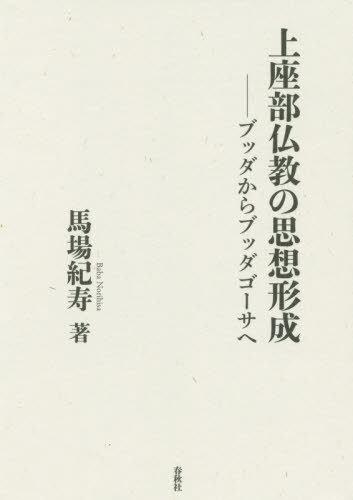 上座部仏教の思想形成
――ブッダからブッダゴーサへ
馬場紀寿 著
Baba Norihisa
春秋社